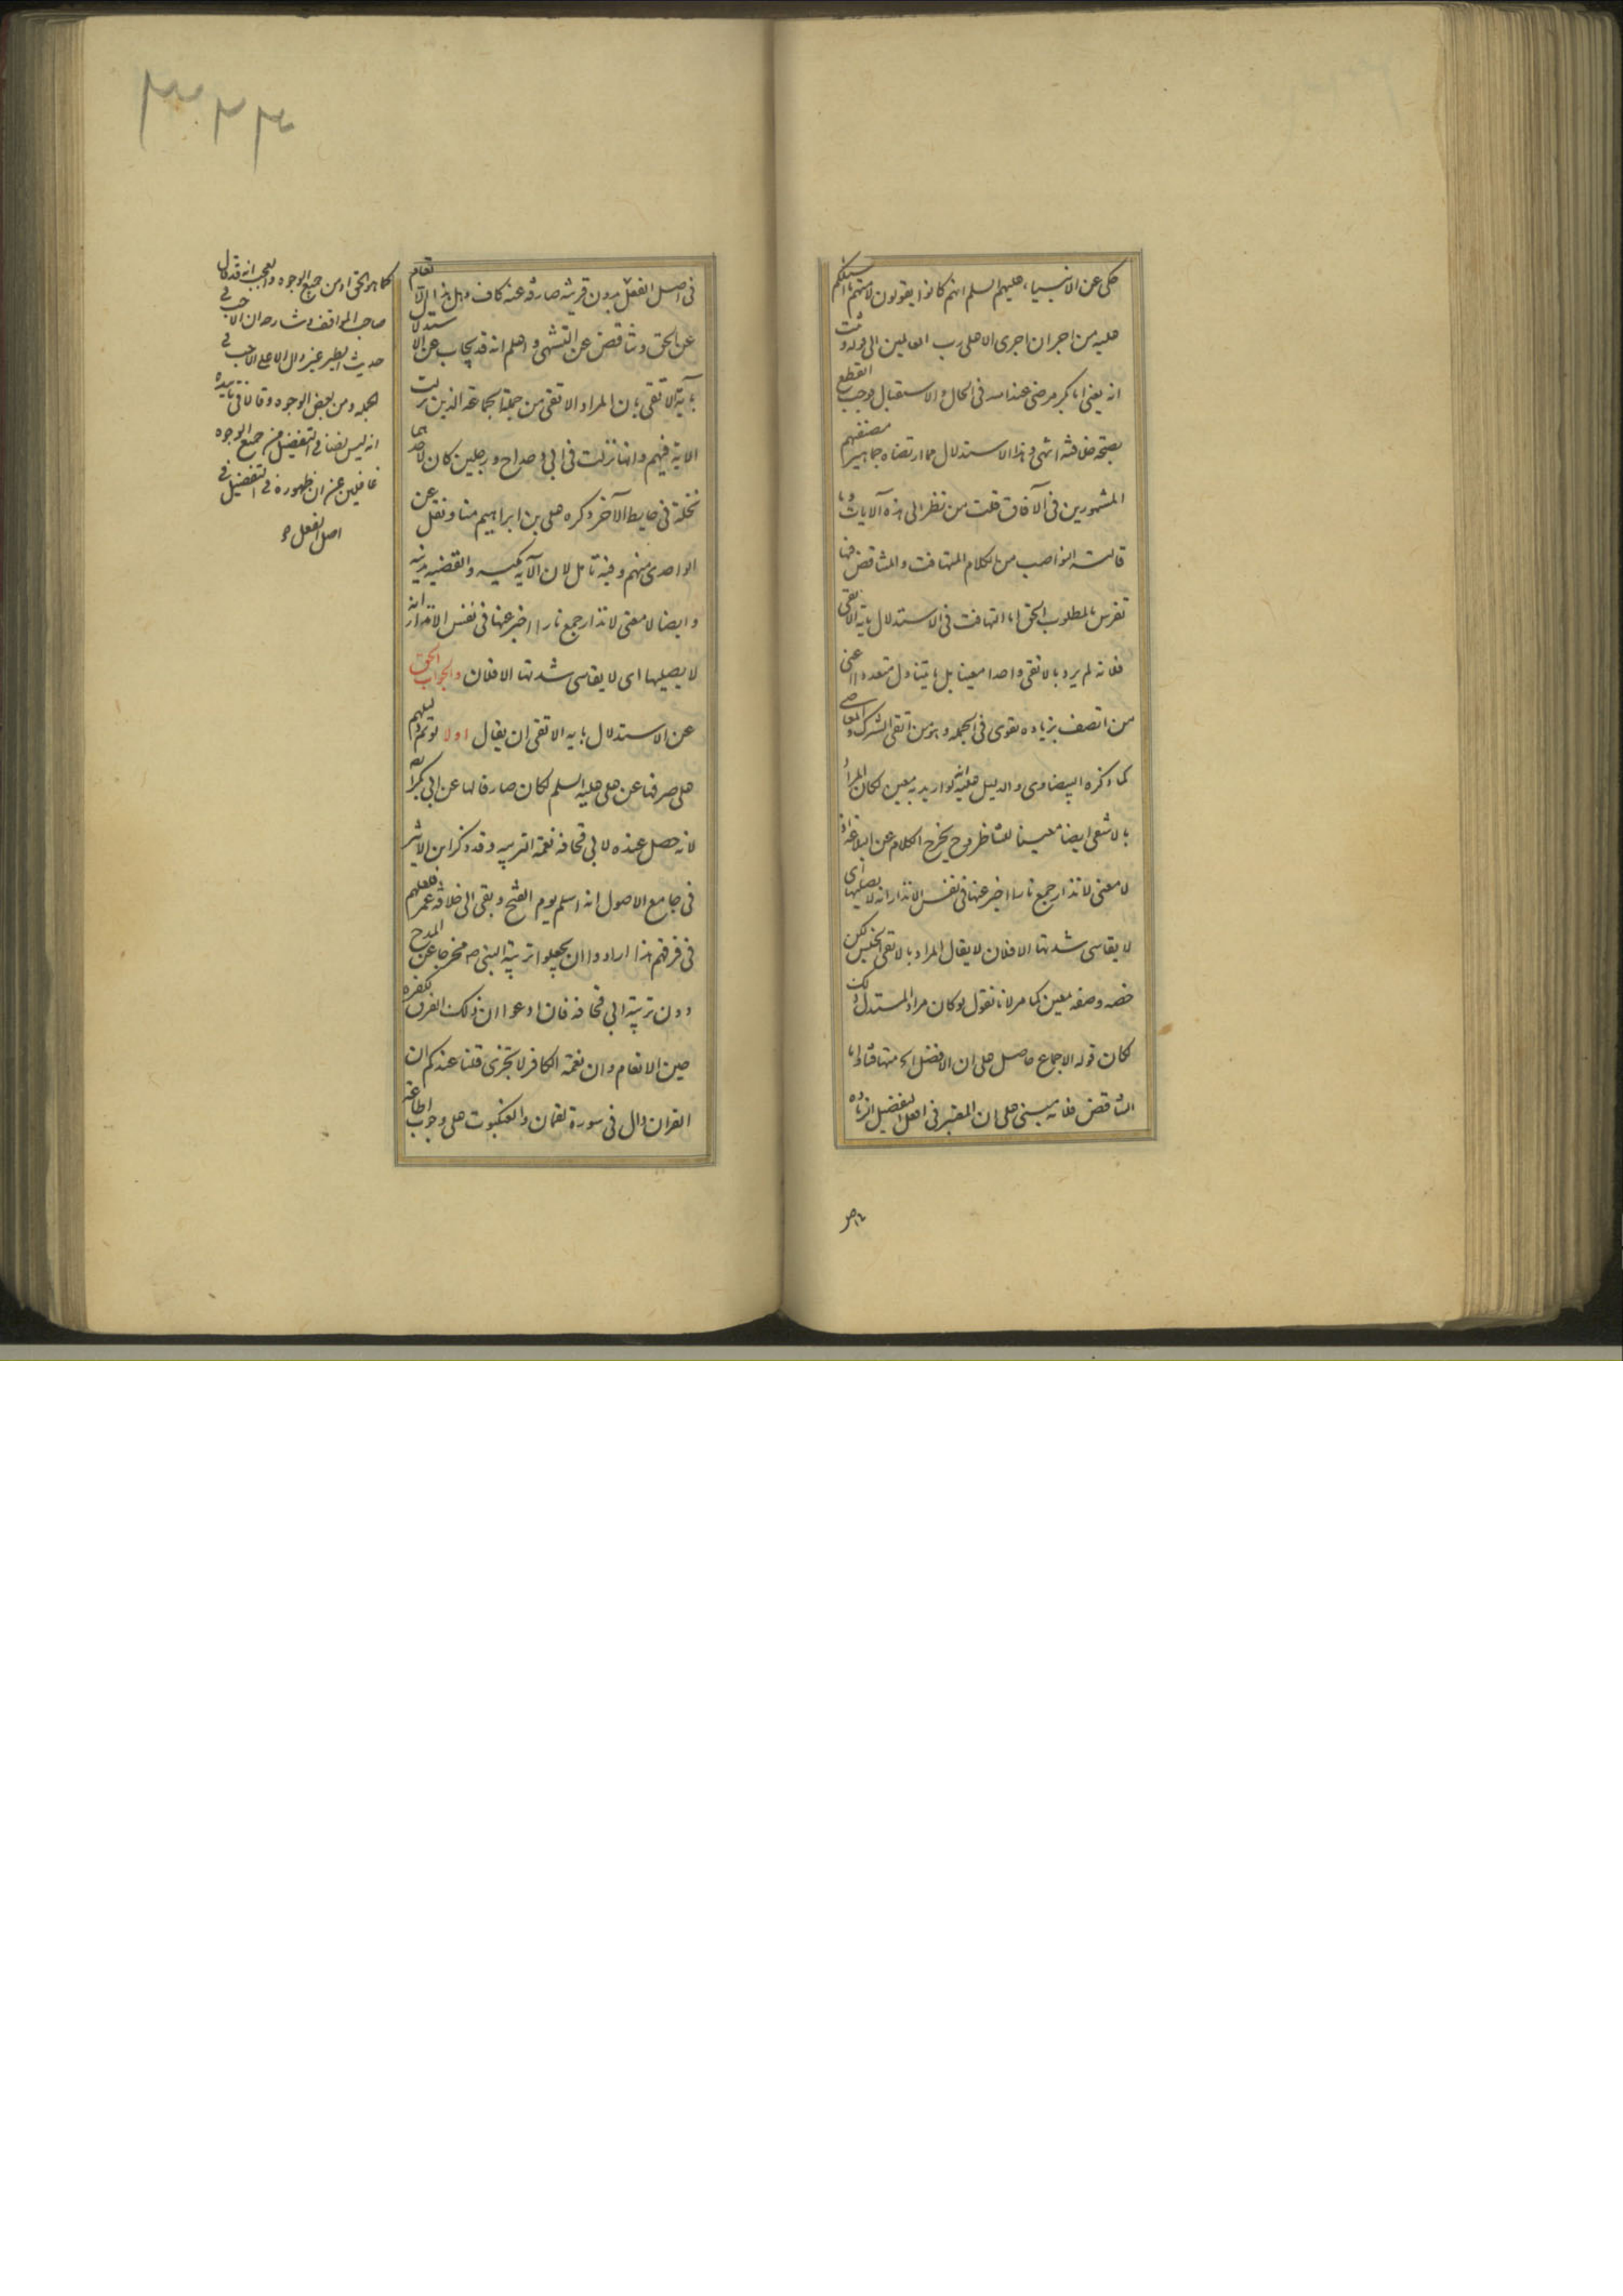 حكى عن الانبياء عليهم السلم انهم كانوا يقولون لاممهم ما اسئلكم
عليه من اجر ان اجرى الا على رب العالمين الى قوله و ثبت
انه يعنى ابا بكر مرضى عند الله فى الحال و الاستقبال فوجب القطع
بصحة خلافته انتهى و هذا الاستدلال مما ارتضاه جماهير مصنفيهم
المشهورين فى الآفاق قلت من نظر الى هذه الآيات و ما
قالت النواصب من الكلام المتهافت و المتناقض فيها
تفرس بالمطلوب الحق اما التهافت فى الاستدلال باية الاتقى
فلانه لم يرد بالاتقى واحدا معينا بل ما يتناول متعددا اعنى
من اتصف بزيادة تقوى فى الجملة و هو من اتقى الشرك و المعاصى
كما ذكره البيضاوى و الدليل عليه انه لو اريد به معين لكان المراد
بالاشقى ايضا معينا للتناظر و ح يخرج الكلام عن البلاغة اذ
لا معنى لانذار جمع نارا اخبر عنها فى نفس الانذار انه لا يصليها اى
لا يقاسى شدتها الا فلان لا يقال المراد بالاتقى الجنس لكن
خصه وصفه بمعين كما مر لانا نقول لو كان مراد المستدل ذلك
لكان قوله الاجماع حاصل على ان الافضل الخ متهافتا و اما
التناقض فلانه مبنى على ان المعتبر فى افعل التفضيل الزيادة
فى اصل الفعل بدون قرينة صارفة عنه كاف و هل هذا الا تعام
عن الحق و تناقض عن التشهى و اعلم انه قد يجاب عن الاستدلال
بآية الاتقى بان المراد الاتقى من جملة الجماعة الذين نزلت
الاية فيهم و انها نزلت فى ابى دحداح و رجلين كان لاحدهما
نخلة فى حايط الآخر ذكره على بن ابراهيم منا و نقل عن
الواحدى منهم و فيه تامل لان الآية مكيه و القضيه مدنية
و ايضا لا معنى لانذار جمع نارا اخبر عنها فى نفس الانذار انه
لا يصليها اى لا يقاسى شدتها الا فلان و الجواب الحق
عن الاستدلال باية الاتقى ان يقال اولا لو تم دليلهم
على صرفها عن على عليه السلم لكان صارفا لها عن ابى بكر
لانه حصل عنده لابى قحافة نعمة التربيه و قد ذكر ابن الاثير
فى جامع الاصول انه اسلم يوم الفتح و بقى الى خلافة عمر فلعلهم
فى فرقهم هذا ارادوا ان يجعلوا تربية النبى ص مخرجا عن المدح
دون تربية ابى قحافة فان ادعوا ان ذلك الفرق بكفره
حين الانعام و ان نعمة الكافر لا تجزى قلنا عندكم ان
القران دال فى سورة لقمان و العنكبوت على وجوب اطاعة
كما هو الحق او من جميع الوجوه و العجب انه قد قال
صاحب المواقف و شارحه ان الاحب فى
حديث الطير غير دال الا على الاحب فى
الجملة و من بعض الوجوه و قالا فى تاييده
انه ليس نصا فى التفضيل من جميع الوجوه
غافلين عن ان ظهوره فى التفضيل فى
اصل الفعل